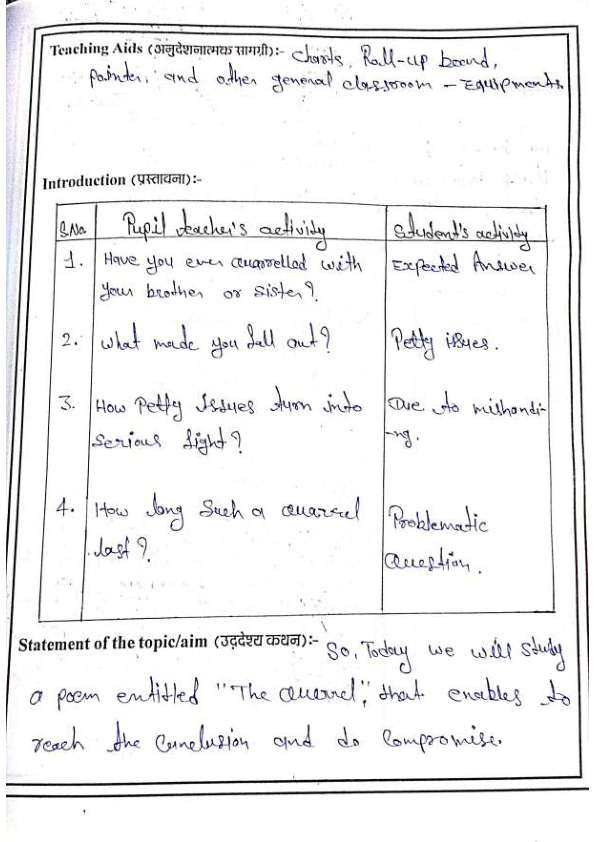 Teaching Aids (अनुदेशनात्मक सामग्री):- Charts, Roll-up board,
Pointer, and other general classroom - Equipments.
Introduction (प्रस्तावना):-
S.No. Pupil teacher's activity Student's activity
1. Have you ever quarrelled with Expected Answer
your brother or sister?
2. What made you fall out? Petty issues.
3. How Petty Issues turn into Due to mishandi-
serious fight? -ng.
4. How long Such a quarrel Problematic
last? Question.
Statement of the topic/aim (उद्देश्य कथन):- So, Today we will study
a poem entitled "The quarrel", that enables to
reach the Conclusion and do Compromise.